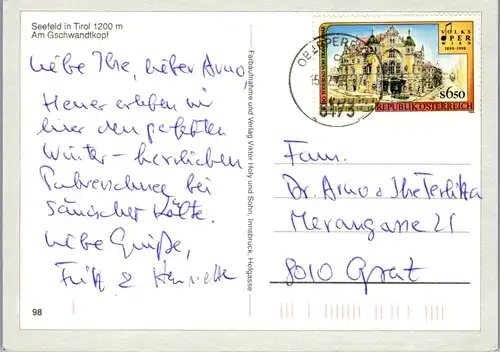 Seefeld in Tirol 1200 m
Am Gschwandtkopf
Liebe Ilse, lieber Arno,
Heuer erleben wir
hier den perfekten
Winter - herrlichen
Pulverschnee bei
Kälte.
Liebe Grüße,
Fritz &
98
Farbaufnahme und Verlag Viktor Holy und Sohn, Innsbruck, Hofgasse
VOLKS
OPER
WIEN
1898-1998
S6.50
REPUBLIK ÖSTERREICH
6173
Fam.
Dr. Arno & Ilse Terlitza
Merangasse 21
8010 Graz